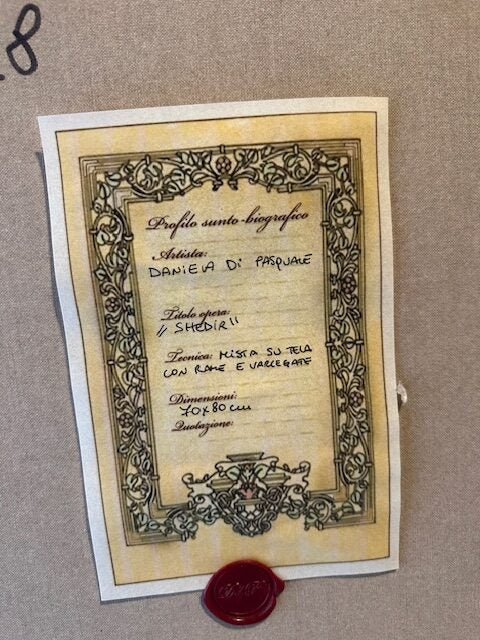 .8
Profilo sunto-biografico
Artista:
DANIELA Di PASQUALE
Titolo opera:
"SHEDIR"
Tecnica: MISTA SU TELA
CON RAME E VARIEGATE
Dimensioni:
70x80cm
Quotazione: